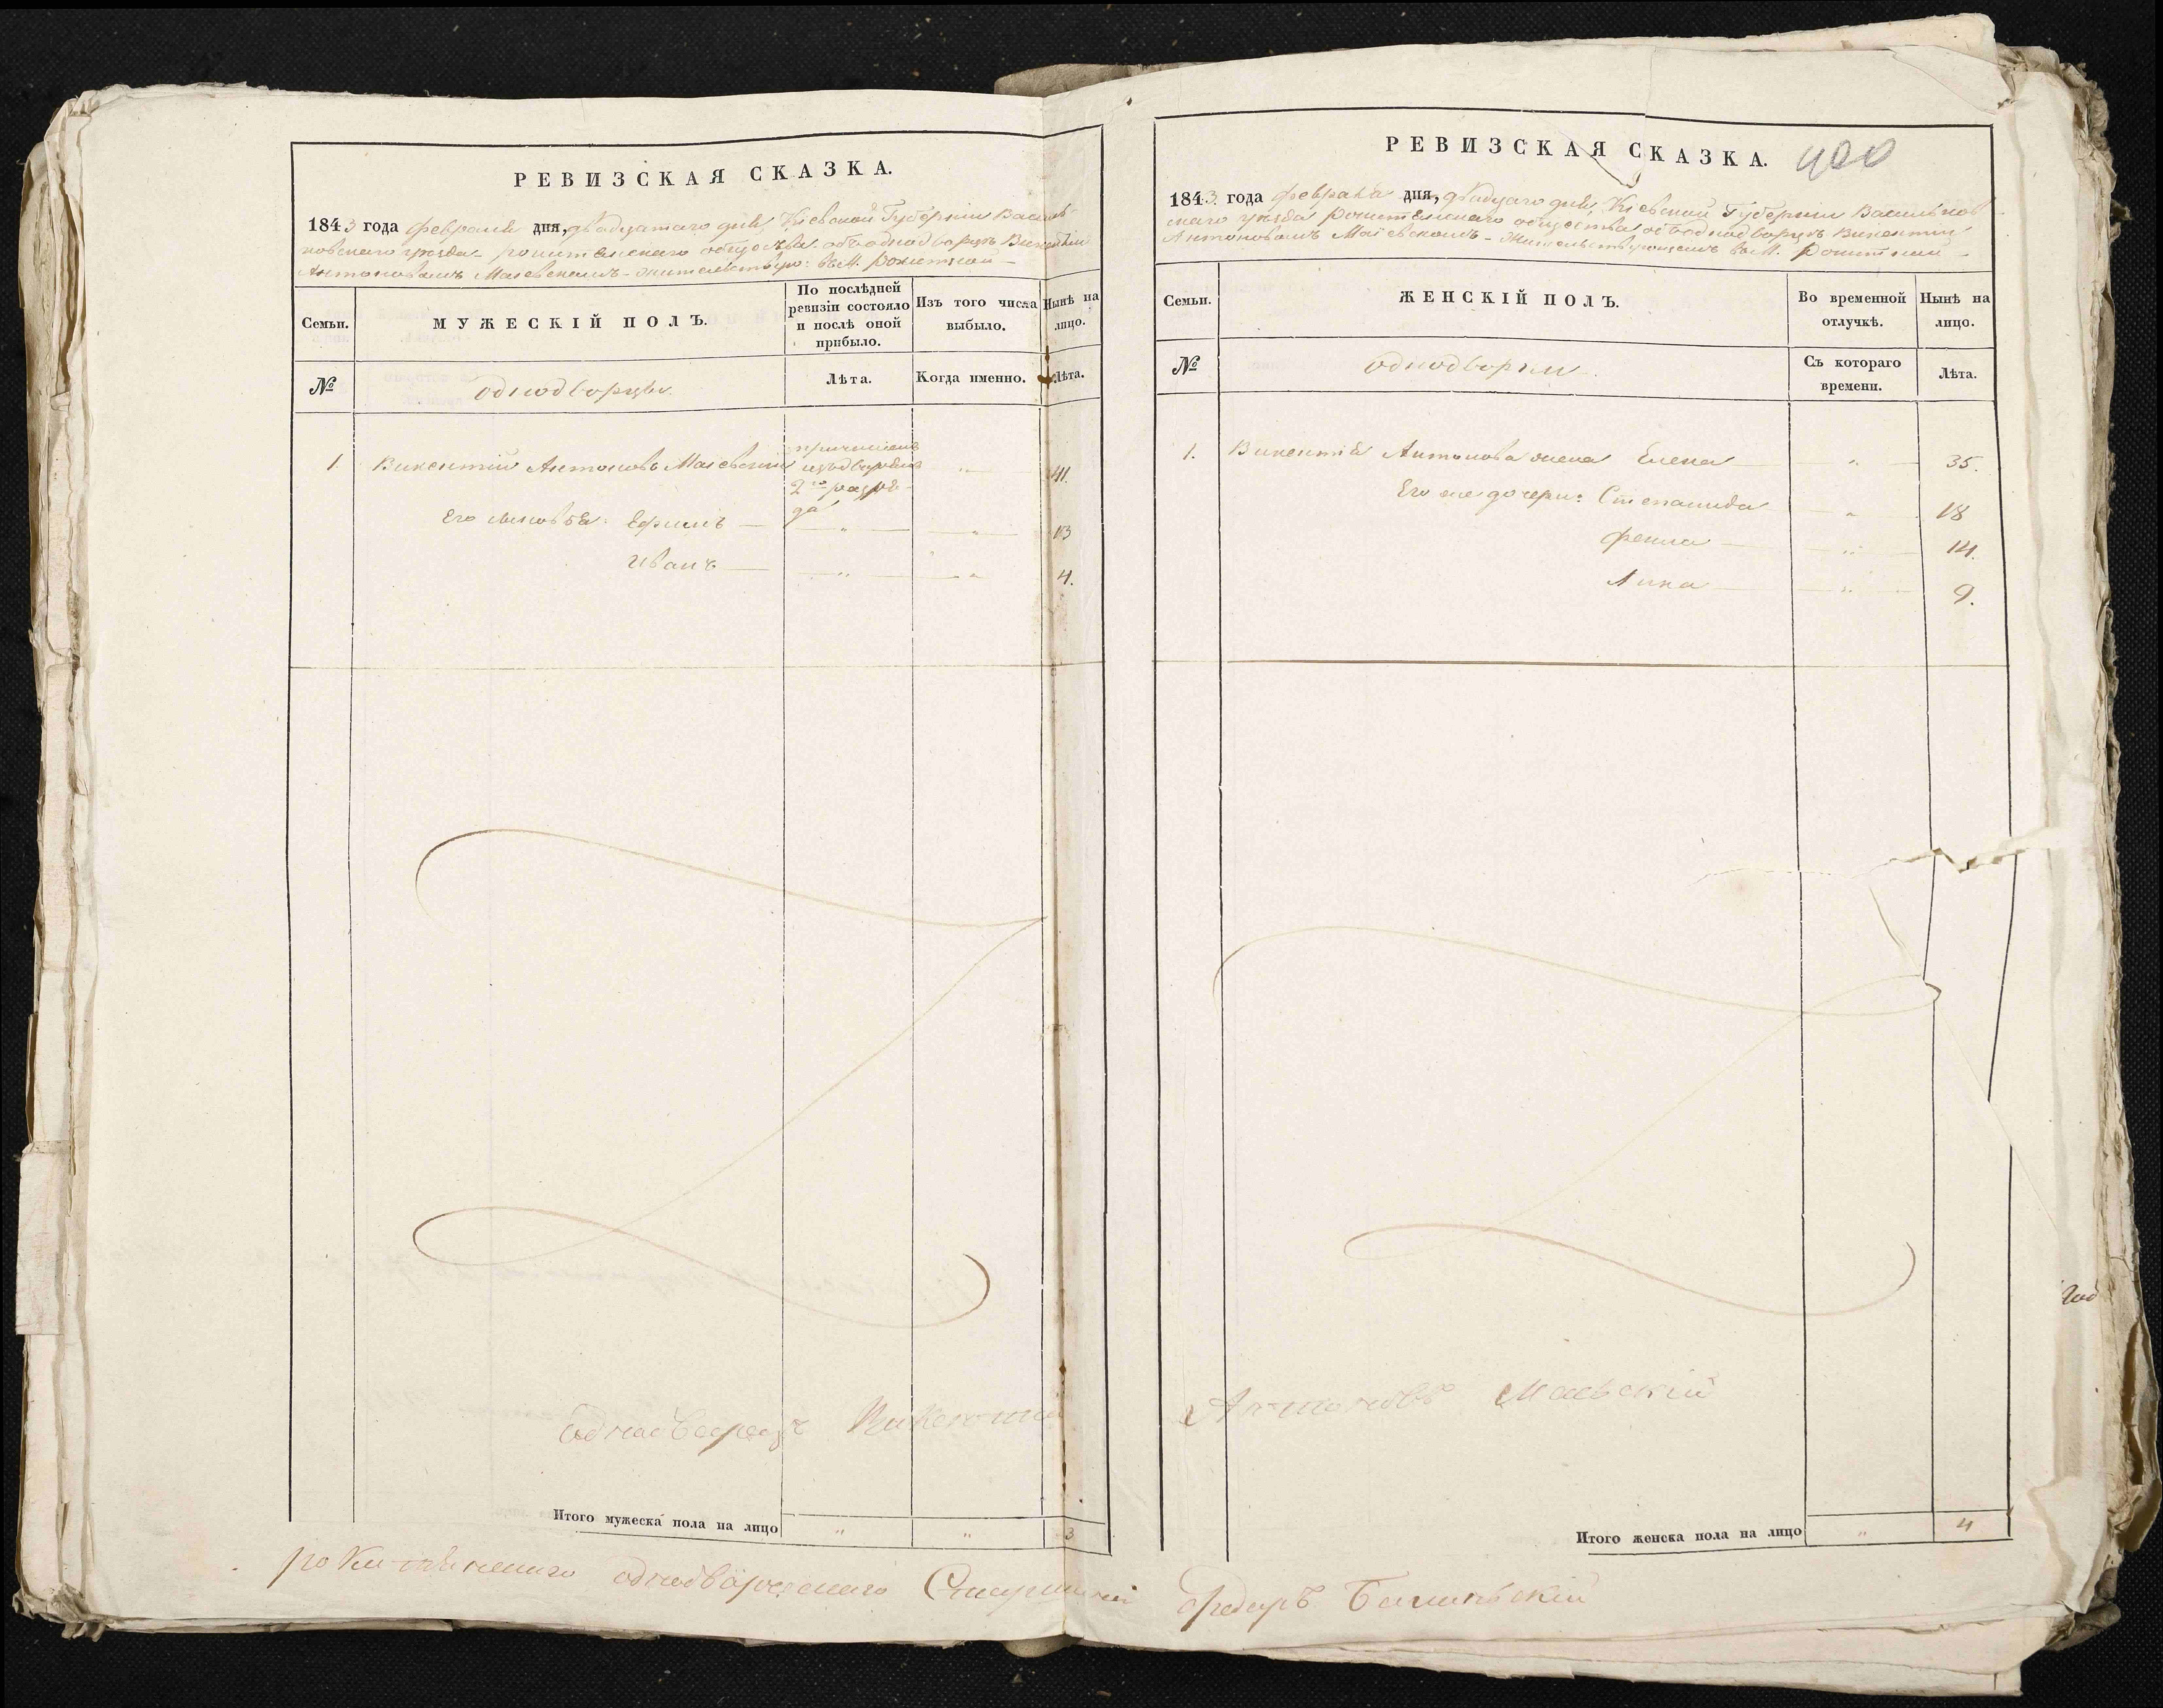 РЕВИЗСКАЯ СКАЗКА.
1843 года февраля дня, двадцатаго дня, Кіевской Губерніи Василь-
ковскаго уѣзда общества объ однодворцѣ Викентіи
Антоновомъ Маіевскомъ - жительствую: въ М.
Семьи.
МУЖЕСКІЙ ПОЛЪ.
По послѣдней ревизіи состояло и послѣ оной прибыло.
Изъ того числа выбыло.
Нынѣ на лицо.
№
однодворцы.
Лѣта.
Когда именно.
Лѣта.
1. Викентій Антоновъ Маіевскій
причисленъ
изъ дворянъ
2го разря-
да
„ 41.
Его сыновья: Ефимъ — „ — „ — 13
Иванъ — „ — „ 4.
Однодворецъ Викентий
Итого мужеска пола на лицо „ „ 3
однодворческаго
РЕВИЗСКАЯ СКАЗКА. 400
1843 года февраля дня, двадцаго дня, Кіевской Губерніи Васильков
скаго уѣзда общества объ однодворцѣ Викентіи
Антоновомъ Маіевскомъ - жительствующемъ въ М.
Семьи.
ЖЕНСКІЙ ПОЛЪ.
Во временной отлучкѣ.
Нынѣ на лицо.
№
однодворки
Съ котораго времени.
Лѣта.
1. Викентія Антонова жена Елена — „ — 35.
Его же дочери: Степанида — „ — 18
Фекла — „ — 14.
Анна — „ — 9.
Антоновъ Маевский
Итого женска пола на лицо „ 4
Федоръ